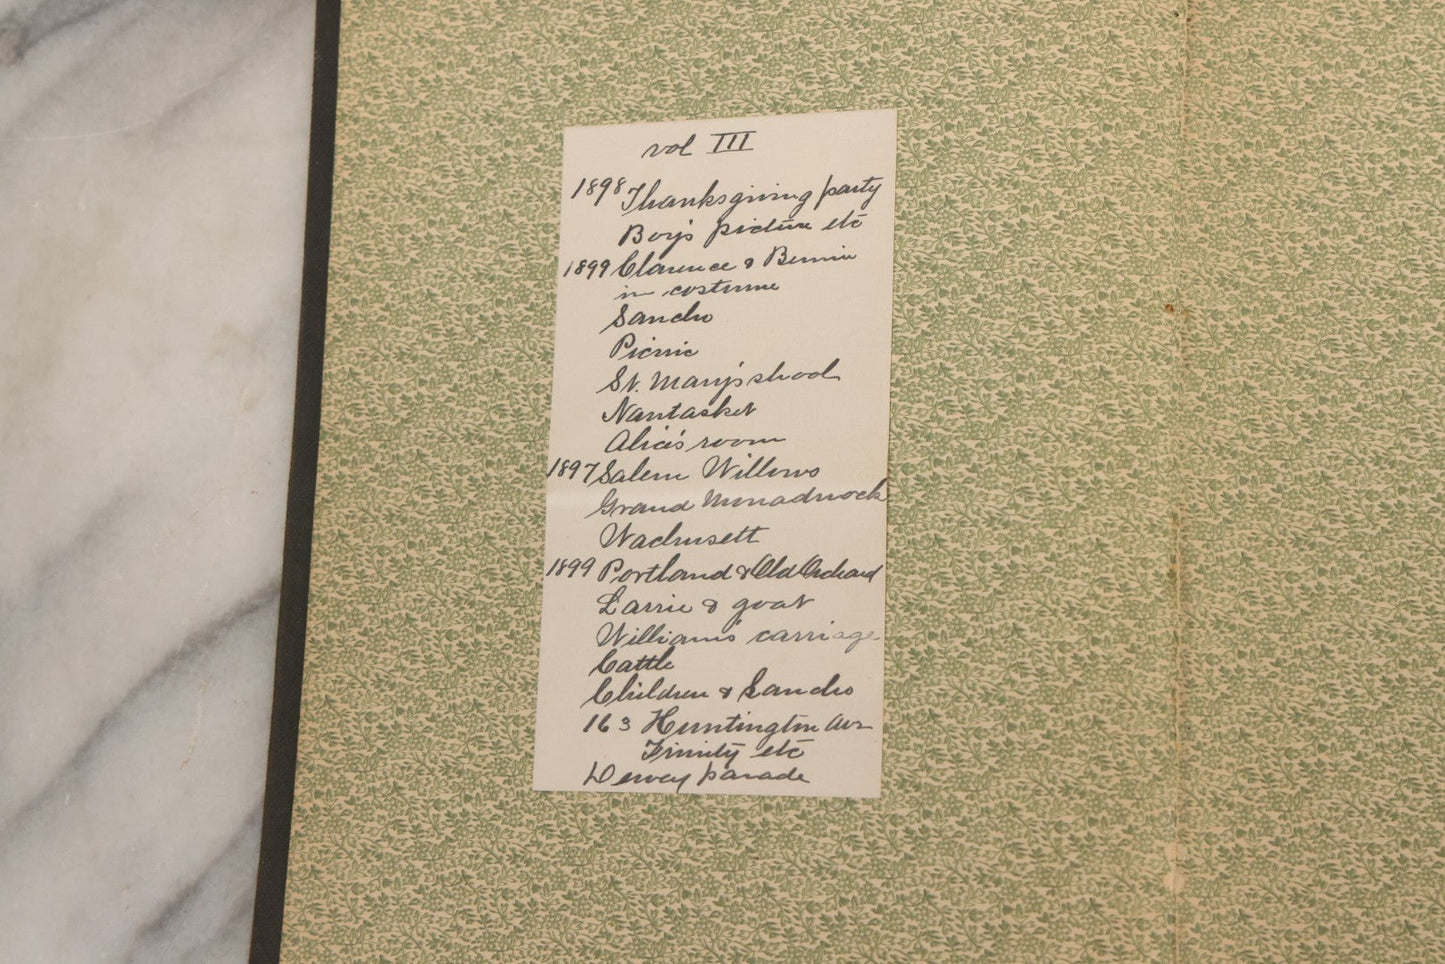 vol III
1898 Thanksgiving party
Boy's picture etc
1899 Clarence & Bennie
in costume
Sancho
Picnic
St. Mary's school
Nantasket
Alice's room
1897 Salem Willows
Grand Monadnock
Wachusett
1899 Portland & Old Orchard
Larrie & goat
William's carriage
Cattle
Children & Sancho
163 Huntington Ave
Trinity etc
Dewey parade